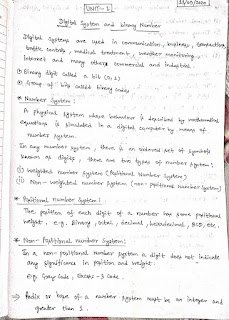 11/09/2020
UNIT-1
Digital System and binary Number
Digital Systems are used in communication, business transaction
traffic controls, medical treatment, weather monitoring
internet and many others commercial and industrial.
Binary digit called a bit (0,1)
Group of bits called binary codes
* Number System:
A physical system whose behaviour is described by mathematical
equations is simulated in a digital computer by means of
number system.
In any number system, there is an ordered set of symbols
known as digits, there are two types of number system:
(i) Weighted number System (Positional Number System)
(ii) Non-weighted number system (non-positional number system)
* Positional number System:
The position of each digit of a number has some positional
weight. e.g. Binary, octal, decimal, hexadecimal, BCD, etc.
* Non-Positional number System:
In a non-positional number system a digit does not indicate
any significance in position and weight.
e.g. Gray Code, Excess-3 Code.
⇒ Radix or base of a number system must be an integer and
greater than 1.